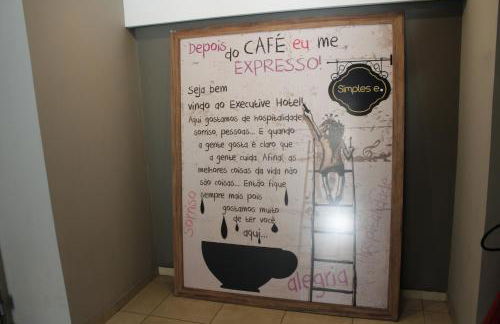 Depois do CAFÉ eu me
EXPRESSO!
Simples e.
Seja bem
vindo ao Executive Hotel!
Aqui gostamos de hospitalidade
sorriso, pessoas... E quando
a gente gosta é claro que
a gente cuida. Afinal, as
melhores coisas da vida não
são coisas... Então fique
sempre mais pois
gostamos muito
de ter você
aqui...
sorriso
alegria